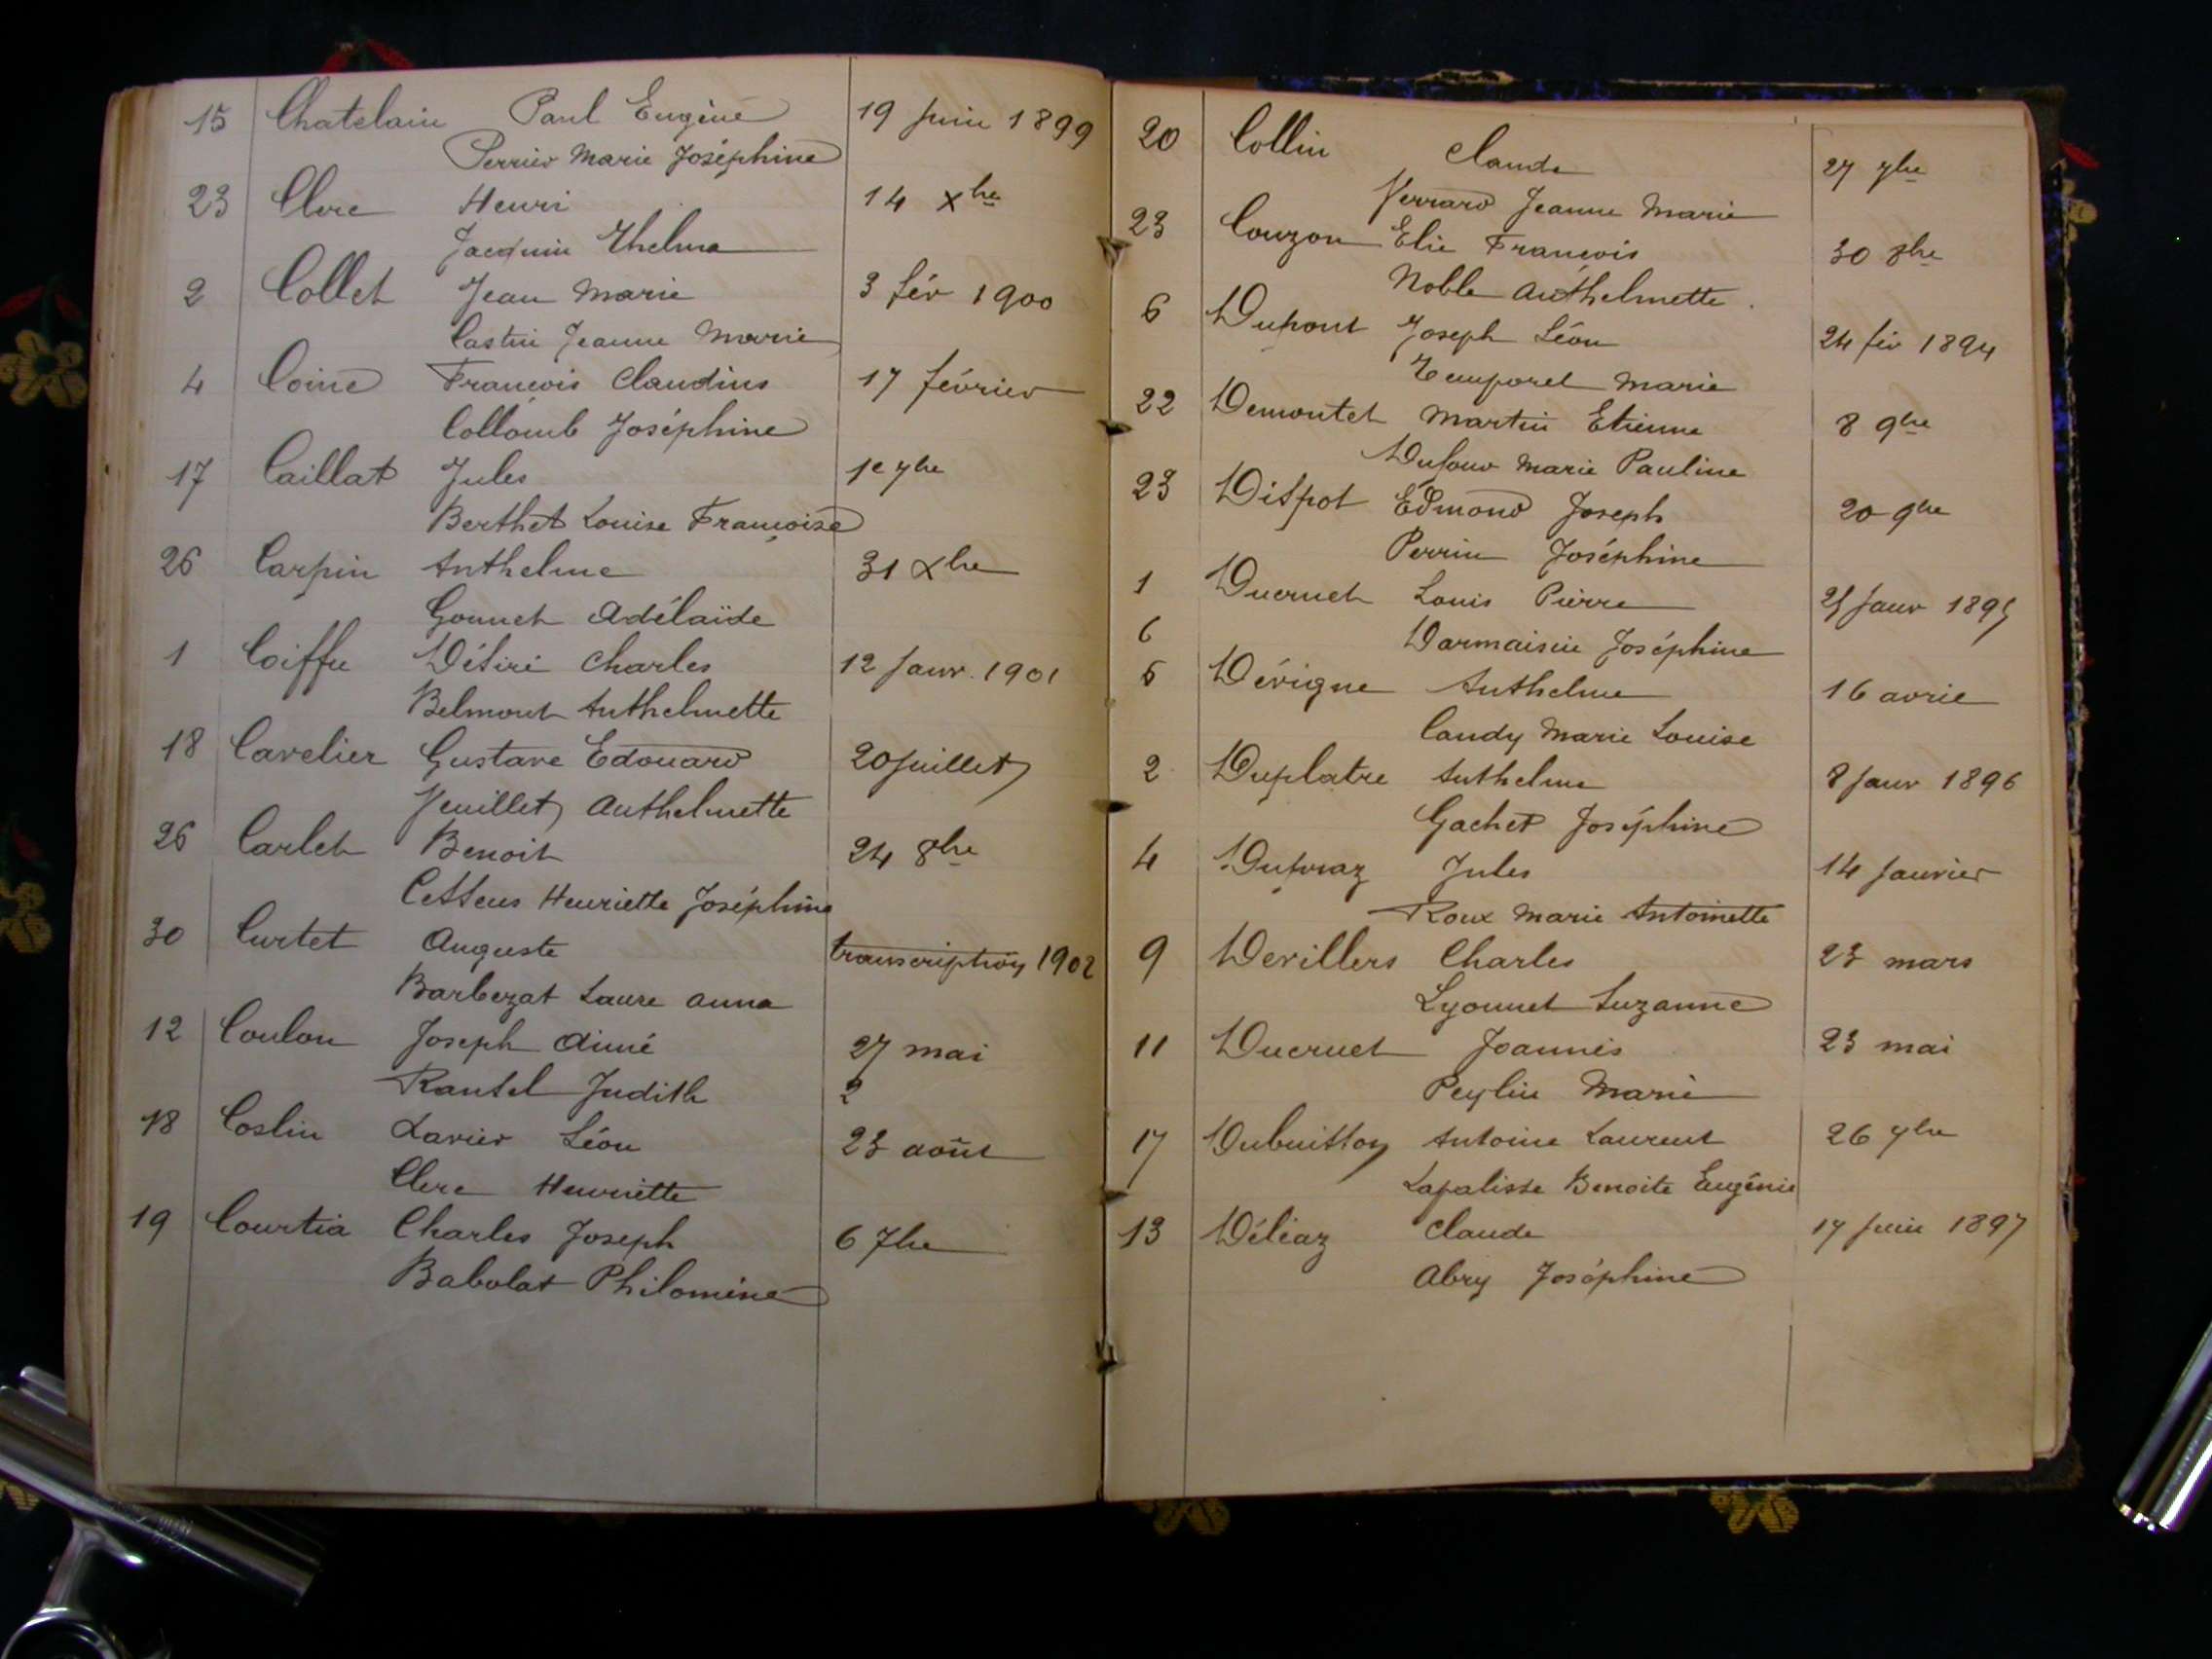 15 Chatelain Paul Eugène 19 Juin 1899
Perrier Marie Joséphine
23 Clerc Henri 14 Xbre
Jacquin Thelma
2 Collet Jean Marie 3 fév 1900
Castin Jeanne Marie
4 Coine François Claudius 17 février
Collomb Joséphine
17 Caillat Jules 1e 7bre
Berthet Louise Françoise
26 Carpin Anthelme 31 Xbre
Gonnet Adélaïde
1 Coiffu Désiré Charles 12 Janv. 1901
Belmont Anthelmette
18 Cavelier Gustave Edouard 20 Juillet
Veuillet Anthelmette
26 Carlet Benoit 24 8bre
Cessens Henriette Joséphine
30 Curtet Auguste transcription 1902
Barbezat Laure Anna
12 Coulon Joseph Aimé 27 mai
Judith 2
18 Coslin Xavier Léon 23 août
Clerc Henriette
19 Courtia Charles Joseph 6 7bre
Babolat Philomène
20 Collin Claude 27 7bre
Verrard Jeanne Marie
23 Couzon Elie François 30 8bre
Noble Anthelmette
6 Dupont Joseph Léon 24 fév 1894
Temporel Marie
22 Demontet Martin Etienne 8 9bre
Dufour Marie Pauline
23 Dispot Edmond Joseph 20 9bre
Perrin Joséphine
1 Ducruet Louis Pierre Janv 1895
6 Darmaisin Joséphine
6 Dévigne Anthelme 16 avril
Candy Marie Louise
2 Duplatre Anthelme 8 Janv 1896
Gachet Joséphine
4 Dupraz Jules 14 Janvier
Roux Marie Antoinette
9 Devillers Charles 23 mars
Lyonnet Suzanne
11 Ducruet Joannès 23 mai
Peylin Marie
17 Dubuisson Antoine Laurent 26 7bre
Lapalisse Benoite Eugénie
13 Déléaz Claude 17 Juin 1897
Abry Joséphine